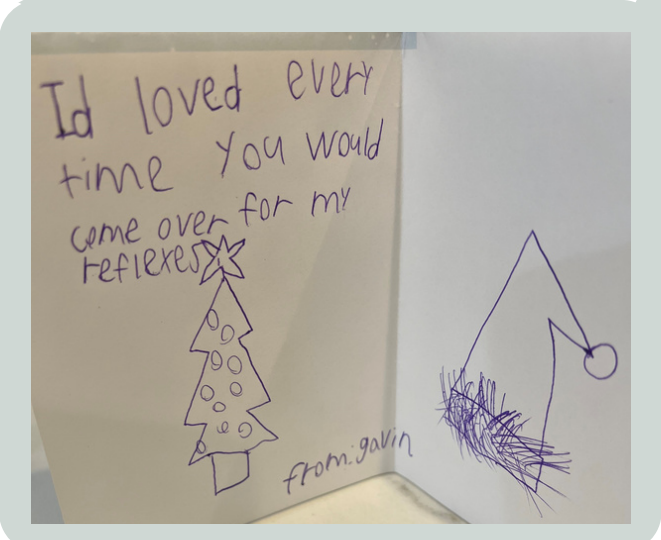 Id loved every
time you would
come over for my
reflexes
from: gavin